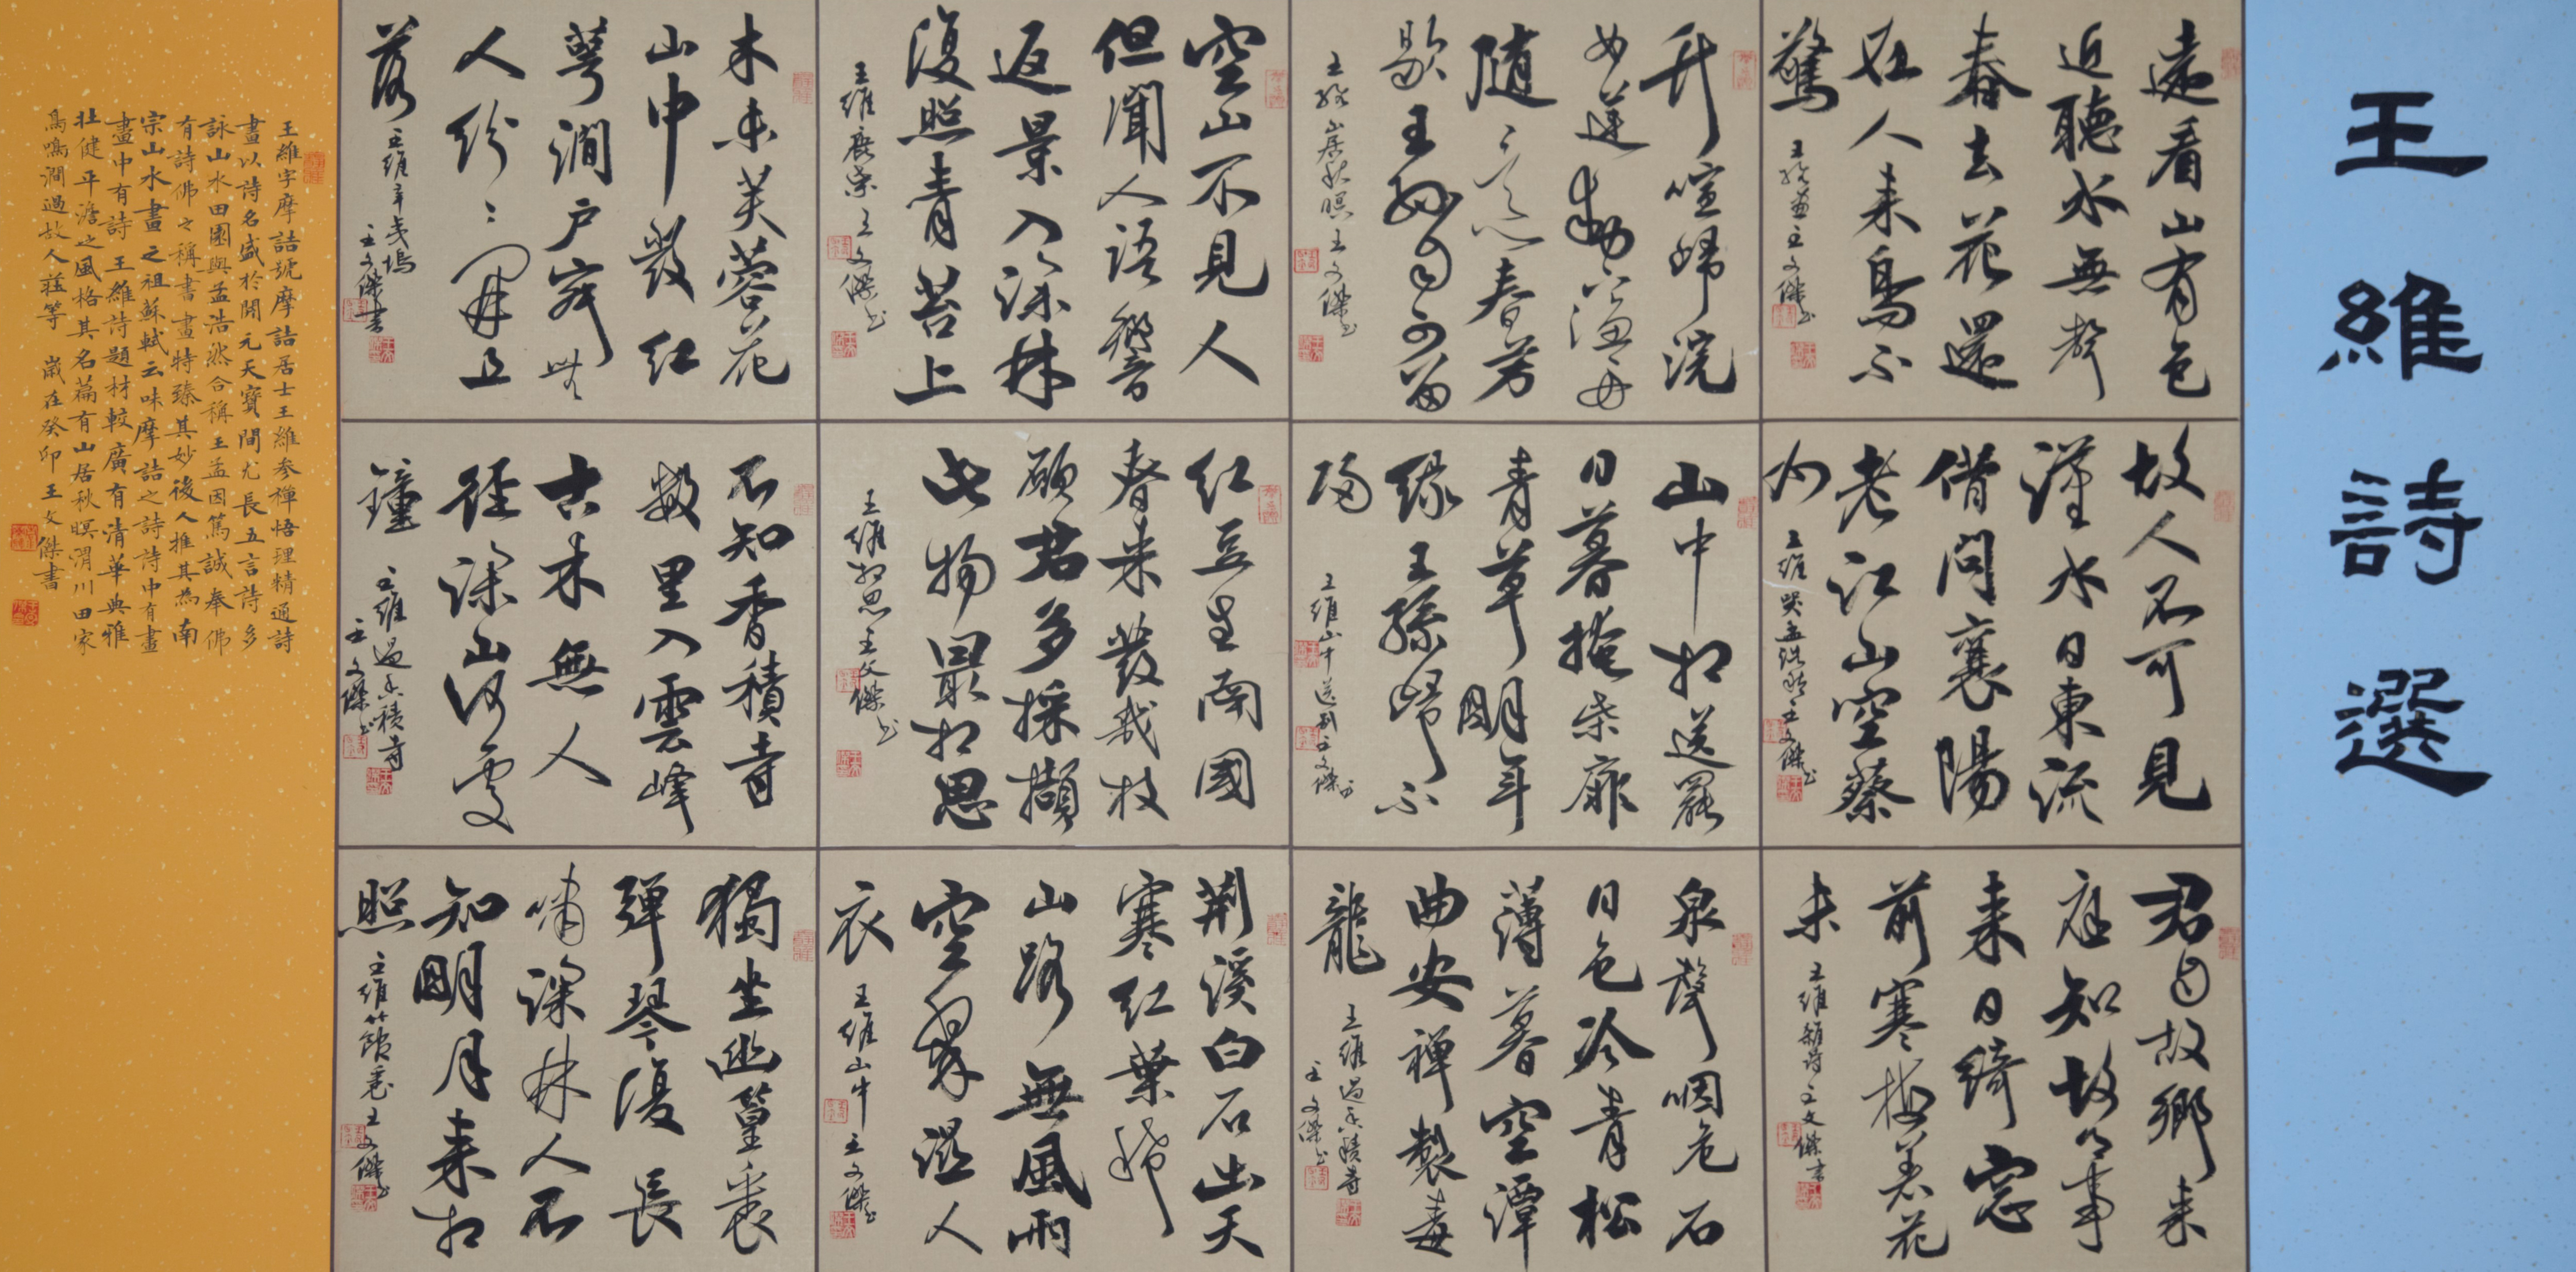 王維詩選
遠看山有色
近聽水無聲
春去花還
在人来鳥不
驚
王維畫王文傑书
竹喧歸浣
女蓮動下漁舟
隨意春芳
歇王孫自可留
王維山居秋暝王文傑书
空山不見人
但聞人語響
返景入深林
復照青苔上
王維鹿柴王文傑书
木末芙蓉花
山中發紅
萼澗户寂無
人紛〻開且
落
王維辛夷塢
王文傑書
故人不可見
漢水日東流
借問襄陽
老江山空蔡
州
王維哭孟浩然王文傑书
山中相送罷
日暮掩柴扉
青草明年
緑王孫歸不
歸
王維山中送别王文傑书
紅豆生南國
春来發幾枝
願君多採擷
此物最相思
王維相思王文傑书
不知香積寺
數里入雲峰
古木無人
徑深山何處
鐘
王維過香積寺
王文傑书
君自故鄉来
應知故鄉事
来日綺窓
前寒梅著花
未
王維雜詩王文傑書
泉聲咽危石
日色冷青松
薄暮空潭
曲安禅製毒
龍
王維過香積寺
王文傑书
荊溪白石出天
寒紅葉稀
山路無風雨
空翠濕人
衣
王維山中王文傑书
獨坐幽篁裏
彈琴復長
嘯深林人不
知明月来相
照
王維竹館王文傑书
王維字摩詰號摩詰居士王維参禪悟理精通詩
畫以詩名盛於開元天寶間尤長五言詩多
詠山水田園與孟浩然合稱王孟因篤誠奉佛
有詩佛之稱書畫特臻其妙後人推其為南
宗山水畫之祖蘇軾云味摩詰之詩詩中有畫
畫中有詩王維詩題材較廣有清華典雅
壮健平澹之風格其名篇有山居秋暝渭川田家
鳥鳴澗過故人莊等 歲在癸卯王文傑書